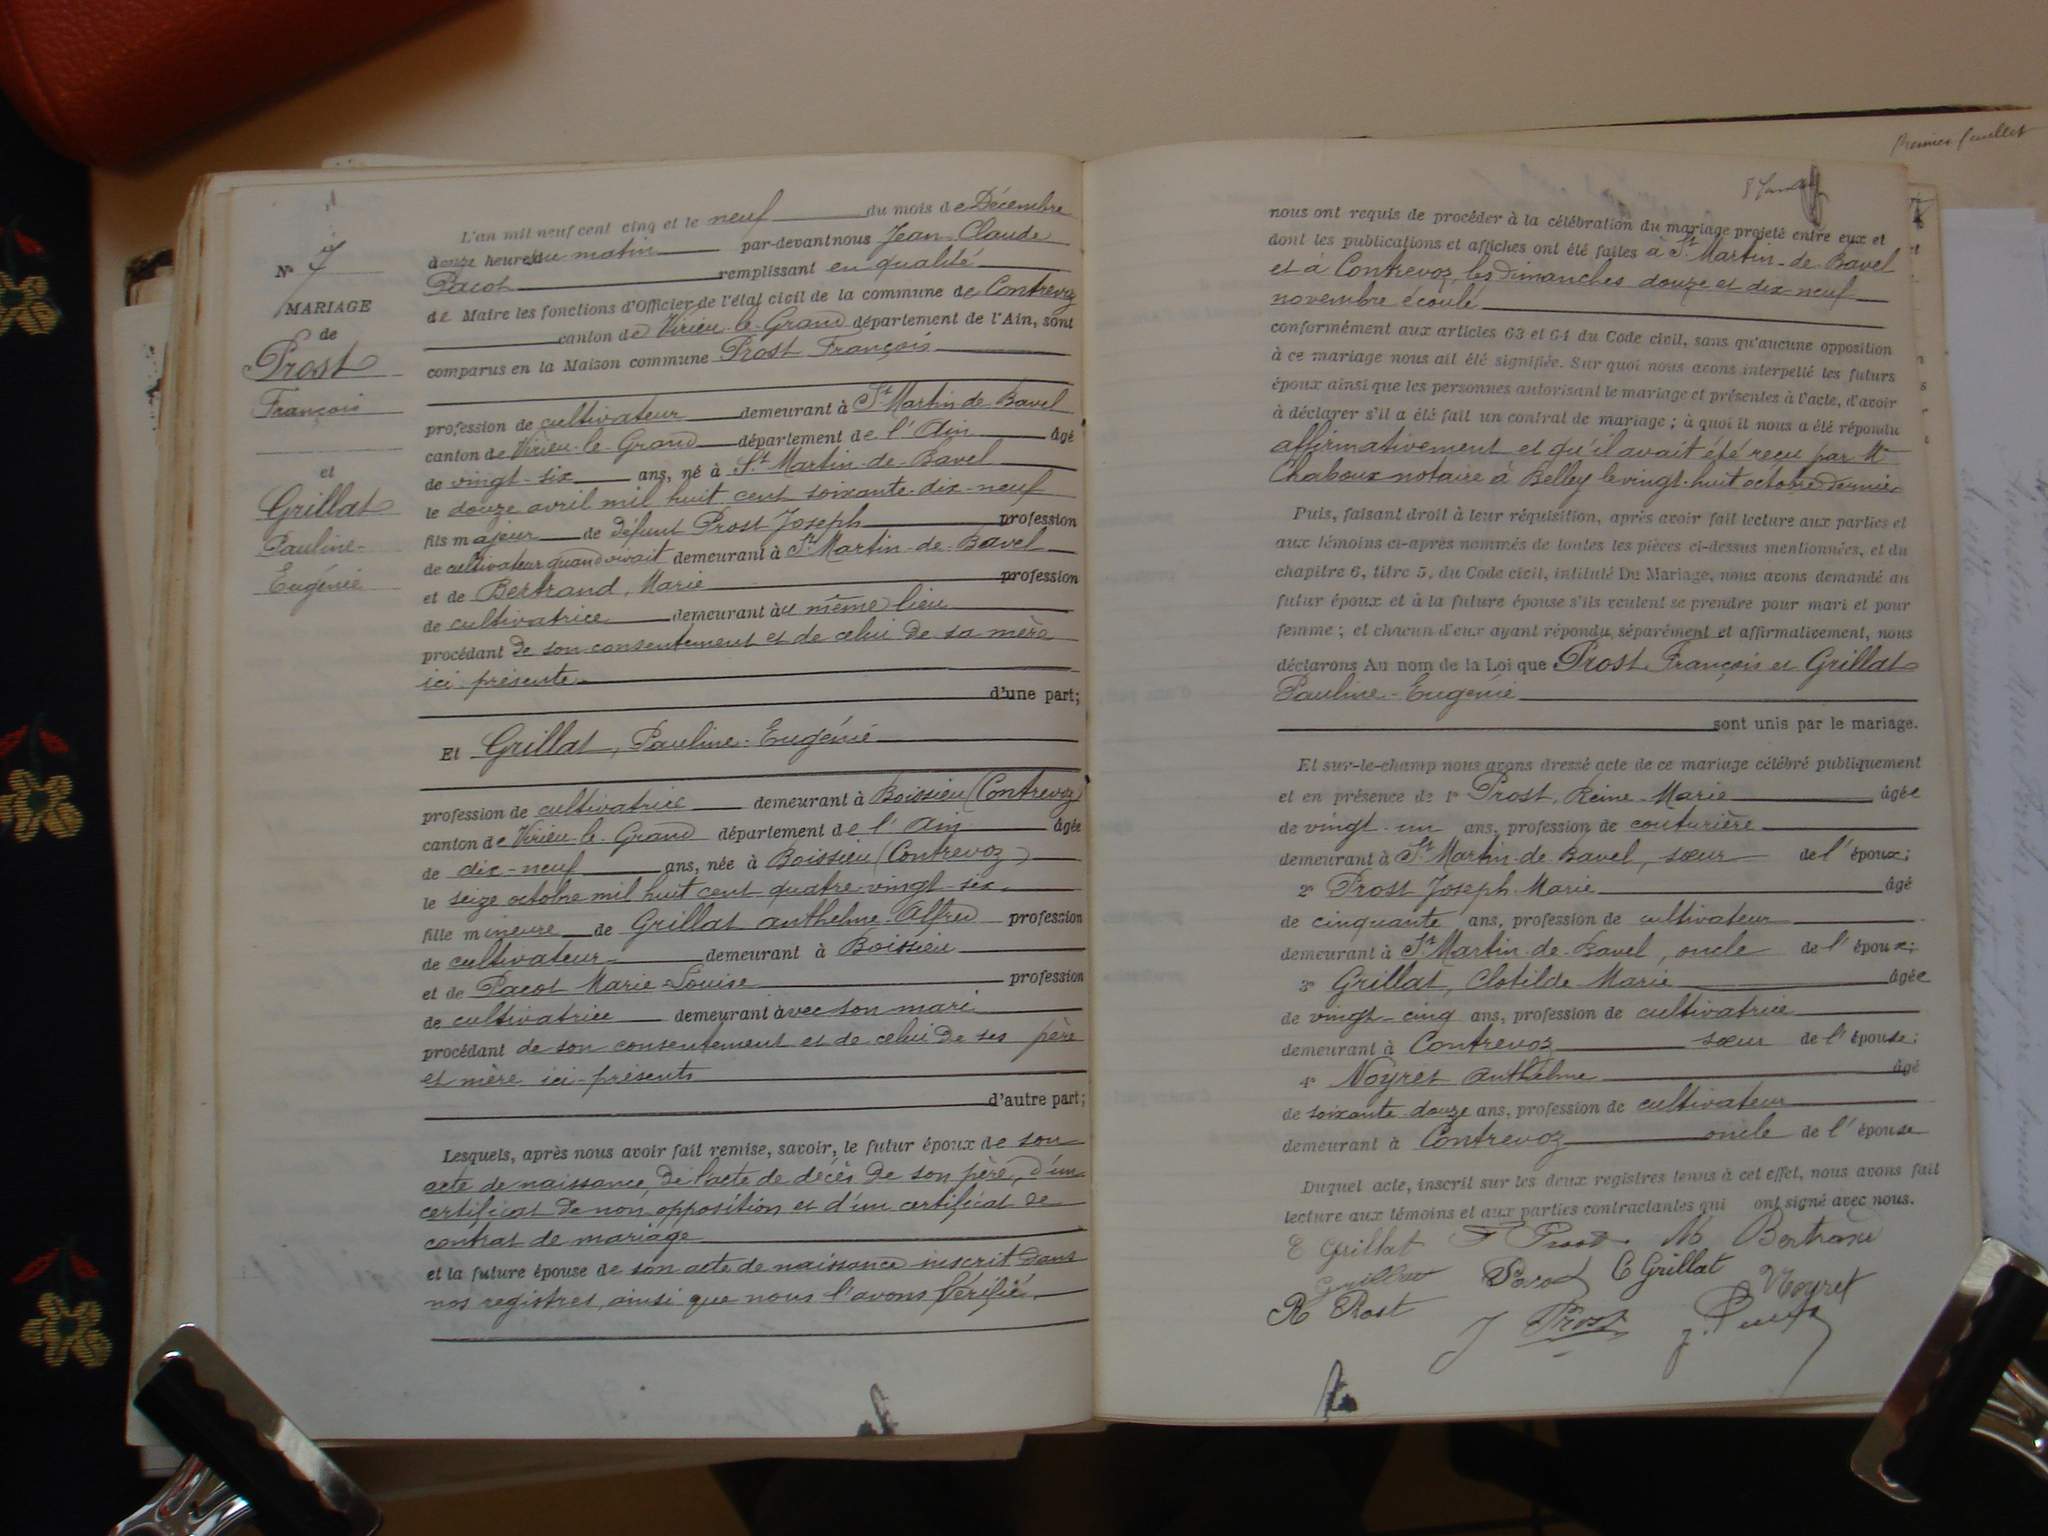 Nº 7
MARIAGE
de
Prost
François
et
Grillat
Pauline-
Eugénie
L'an mil neuf cent cinq et le neuf du mois de Décembre
à onze heures du matin par-devant nous Jean-Claude
Pacot remplissant en qualité
de Maire les fonctions d'Officier de l'état civil de la commune de Contrevoz
canton de Virieu-le-Grand département de l'Ain, sont
comparus en la Maison commune Prost François
profession de cultivateur demeurant à St Martin de Bavel
canton de Virieu-le-Grand département de l'Ain âgé
de vingt-six ans, né à St Martin-de-Bavel
le douze avril mil huit cent soixante-dix-neuf
fils majeur de défunt Prost Joseph profession
de cultivateur quand vivait demeurant à St Martin-de-Bavel
et de Bertrand, Marie profession
de cultivatrice demeurant au même lieu
procédant de son consentement et de celui de sa mère
ici présente
d'une part;
Et Grillat, Pauline-Eugénie
profession de cultivatrice demeurant à Boissieu (Contrevoz)
canton de Virieu-le-Grand département de l'Ain âgée
de dix-neuf ans, née à Boissieu (Contrevoz)
le seize octobre mil huit cent quatre-vingt-six
fille mineure de Grillat anthelme-Alfred profession
de cultivateur demeurant à Boissieu
et de Pacot Marie-Louise profession
de cultivatrice demeurant avec son mari
procédant de son consentement et de celui de ses père
et mère ici-présents
d'autre part;
Lesquels, après nous avoir fait remise, savoir, le futur époux de son
acte de naissance, de l'acte de décès de son père, d'un
certificat de non opposition et d'un certificat de
contrat de mariage
et la future épouse de son acte de naissance inscrit dans
nos registres, ainsi que nous l'avons vérifié.
Premier feuillet
nous ont requis de procéder à la célébration du mariage projeté entre eux et
dont les publications et affiches ont été faites à St Martin-de-Bavel
et à Contrevoz, les dimanches douze et dix-neuf
novembre écoulé
conformément aux articles 63 et 64 du Code civil, sans qu'aucune opposition
à ce mariage nous ait été signifiée. Sur quoi nous avons interpellé les futurs
époux ainsi que les personnes autorisant le mariage et présentes à l'acte, d'avoir
à déclarer s'il a été fait un contrat de mariage ; à quoi il nous a été répondu
affirmativement et qu'il avait été reçu par Me
Chaboux notaire à Belley le vingt-huit octobre dernier
Puis, faisant droit à leur réquisition, après avoir fait lecture aux parties et
aux témoins ci-après nommés de toutes les pièces ci-dessus mentionnées, et du
chapitre 6, titre 5, du Code civil, intitulé Du Mariage, nous avons demandé au
futur époux et à la future épouse s'ils veulent se prendre pour mari et pour
femme ; et chacun d'eux ayant répondu séparément et affirmativement, nous
déclarons Au nom de la Loi que Prost François et Grillat
Pauline-Eugénie
sont unis par le mariage.
Et sur-le-champ nous avons dressé acte de ce mariage célébré publiquement
et en présence de 1º Prost, Reine-Marie âgée
de vingt-un ans, profession de couturière
demeurant à St Martin-de-Bavel, sœur de l'époux;
2º Prost Joseph-Marie âgé
de cinquante ans, profession de cultivateur
demeurant à St Martin-de-Bavel, oncle de l'époux;
3º Grillat, Clotilde-Marie âgée
de vingt-cinq ans, profession de cultivatrice
demeurant à Contrevoz sœur de l'épouse;
4º Noyret anthelme âgé
de soixante-douze ans, profession de cultivateur
demeurant à Contrevoz oncle de l'épouse
Duquel acte, inscrit sur les deux registres tenus à cet effet, nous avons fait
lecture aux témoins et aux parties contractantes qui ont signé avec nous.
E Grillat F Prost M Bertrand
Grillat Pacot C Grillat Noyret
R Prost J Prost